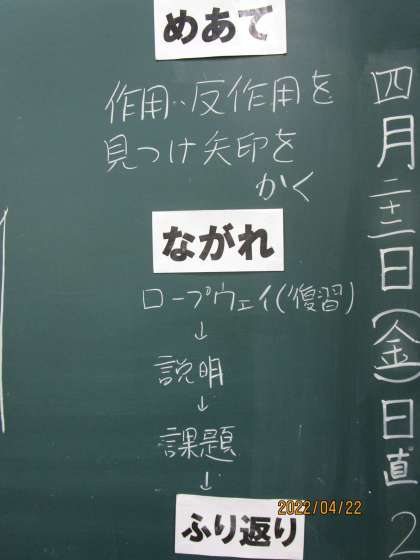 四月二十二日(金)日直 2
めあて
作用・反作用を
見つけ矢印を
かく
ながれ
ロープウェイ(復習)
↓
説明
↓
課題
↓
ふり返り
2022/04/22